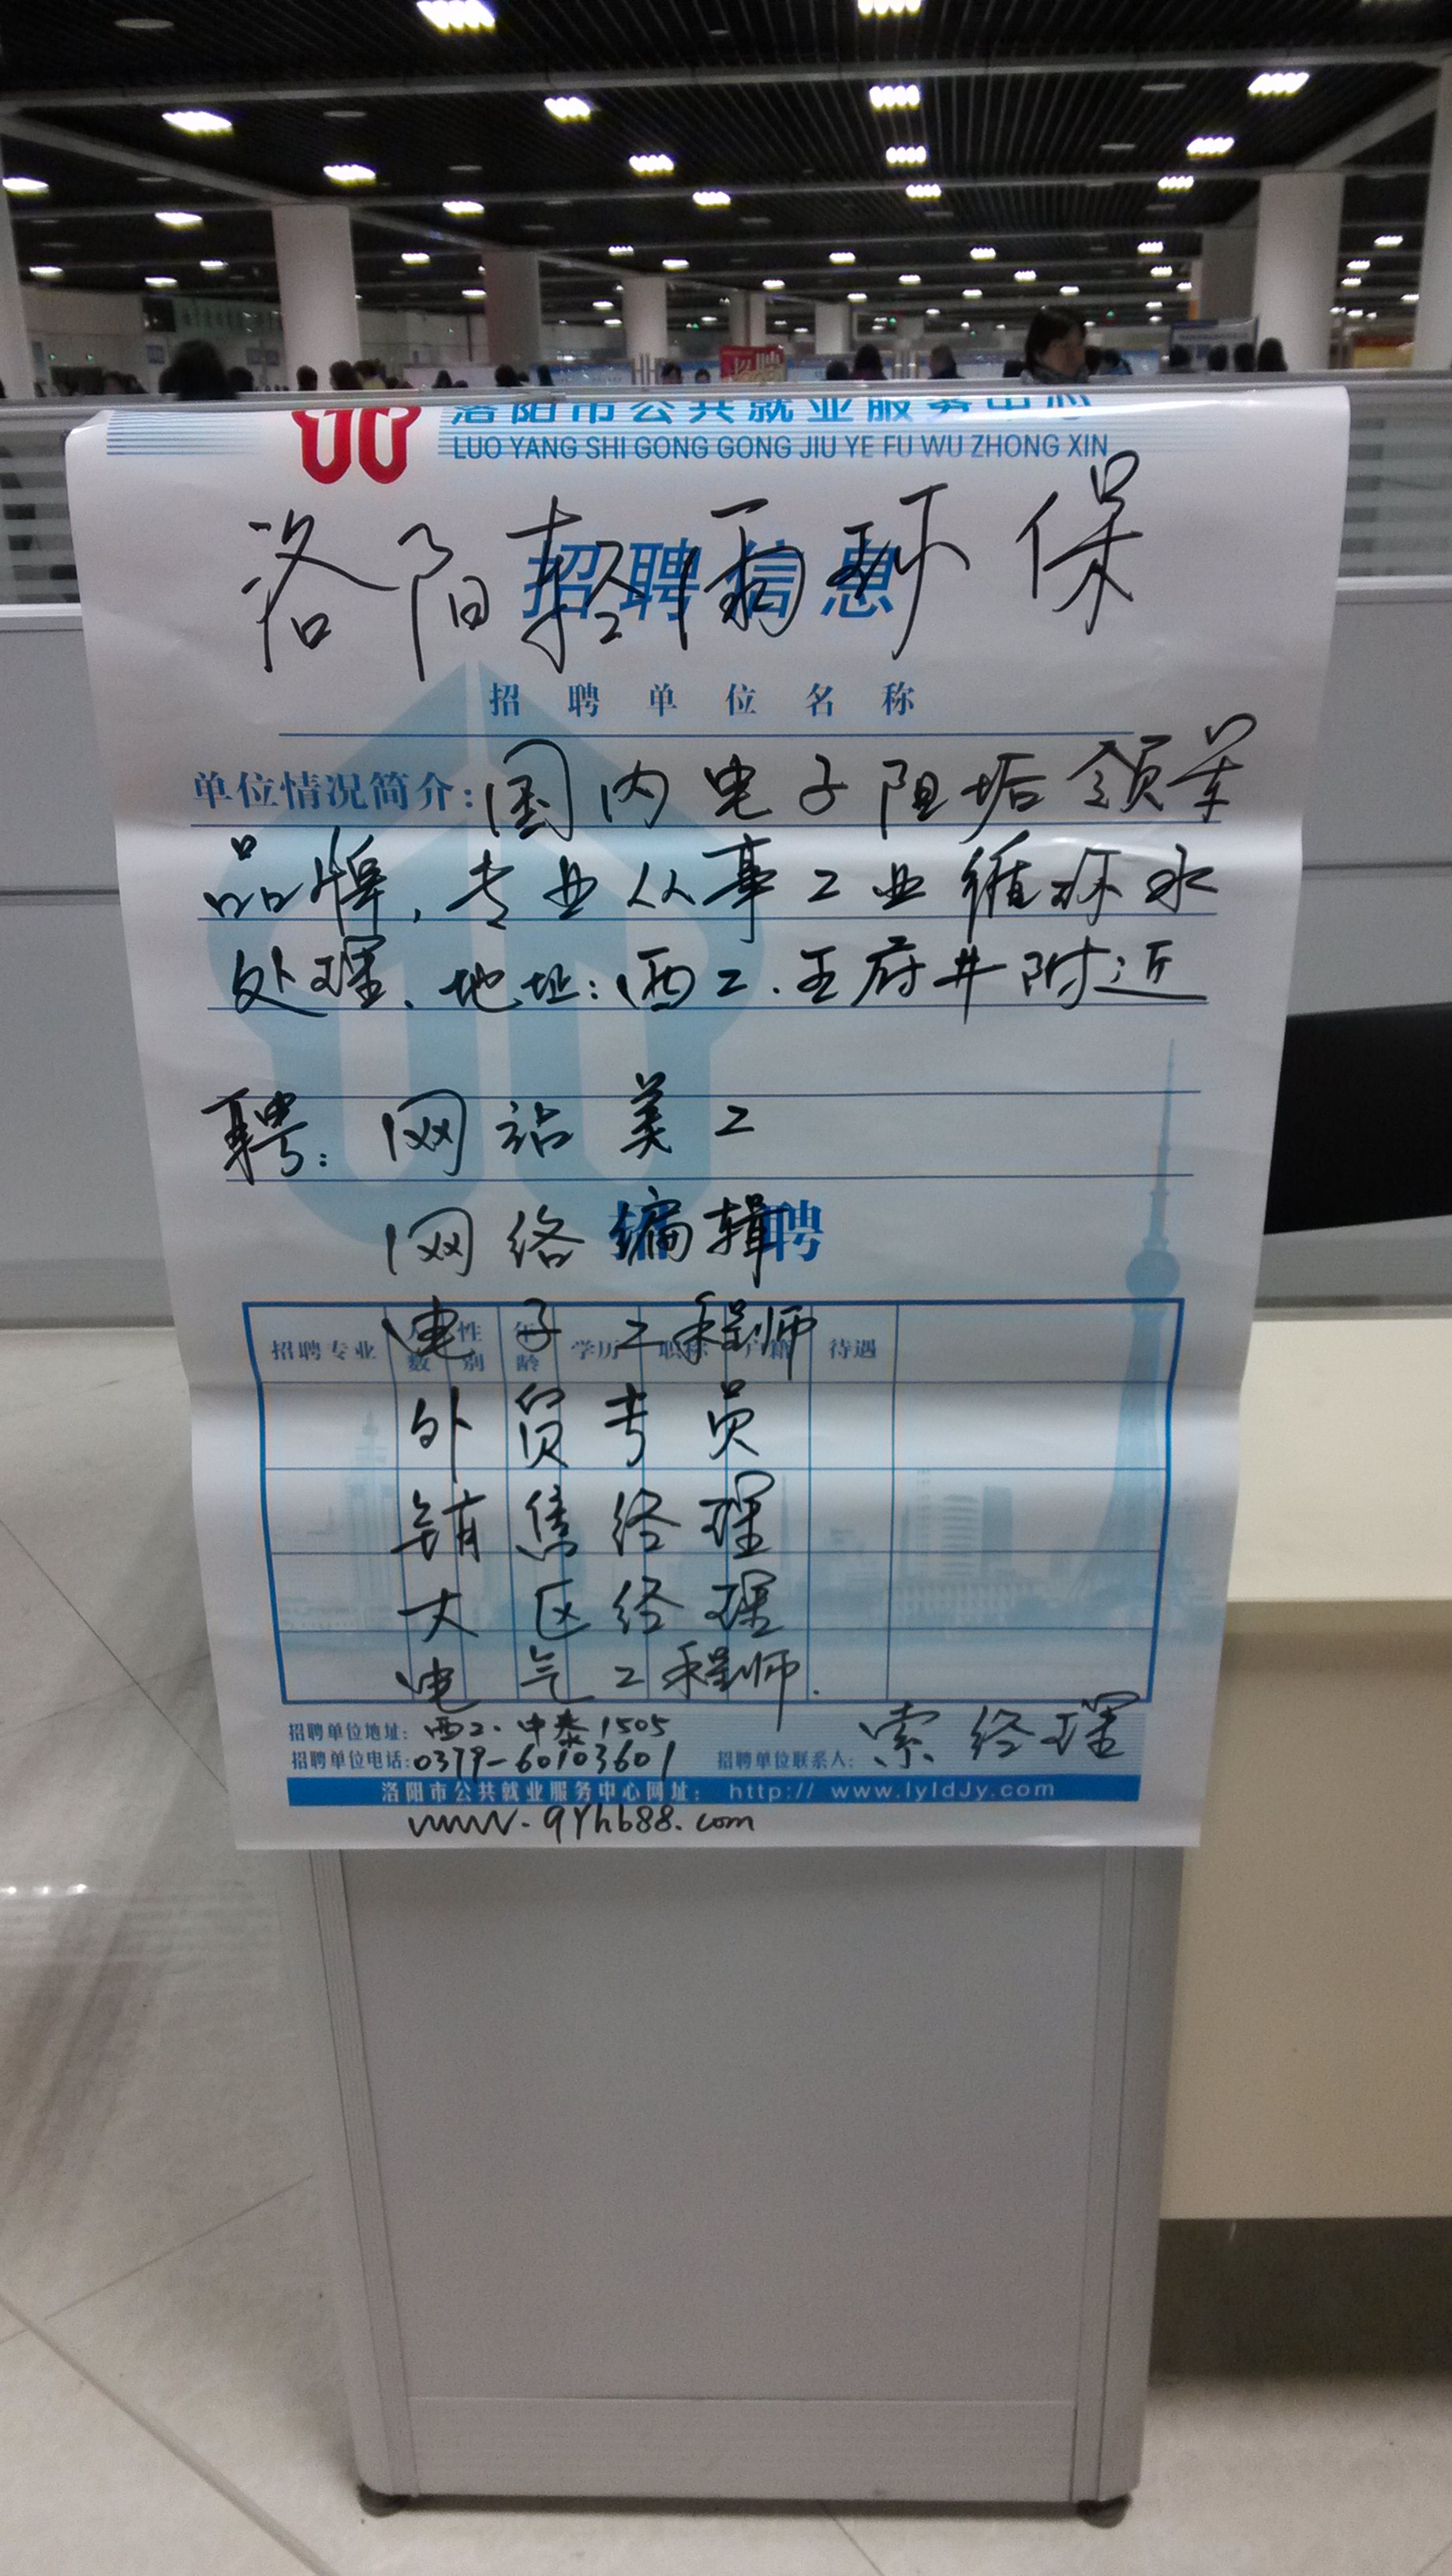 洛阳市公共就业服务中心
LUO YANG SHI GONG GONG JIU YE FU WU ZHONG XIN
招聘信息
洛阳轻雨环保
招聘单位名称
单位情况简介:国内电子阻垢领军
品牌,专业从事工业循环水
处理、地址:西工.王府井附近
聘:网站美工
招聘
网络编辑
电子工程师
招聘专业 人数 性别 年龄 学历 职称 户籍 待遇
外贸专员
销售经理
大区经理
电气工程师.
招聘单位地址:西工.中泰1505
招聘单位电话:0379-60103601 招聘单位联系人:索经理
洛阳市公共就业服务中心网址: http:// www.lyldJy.com
www.qyhb88.com
招聘